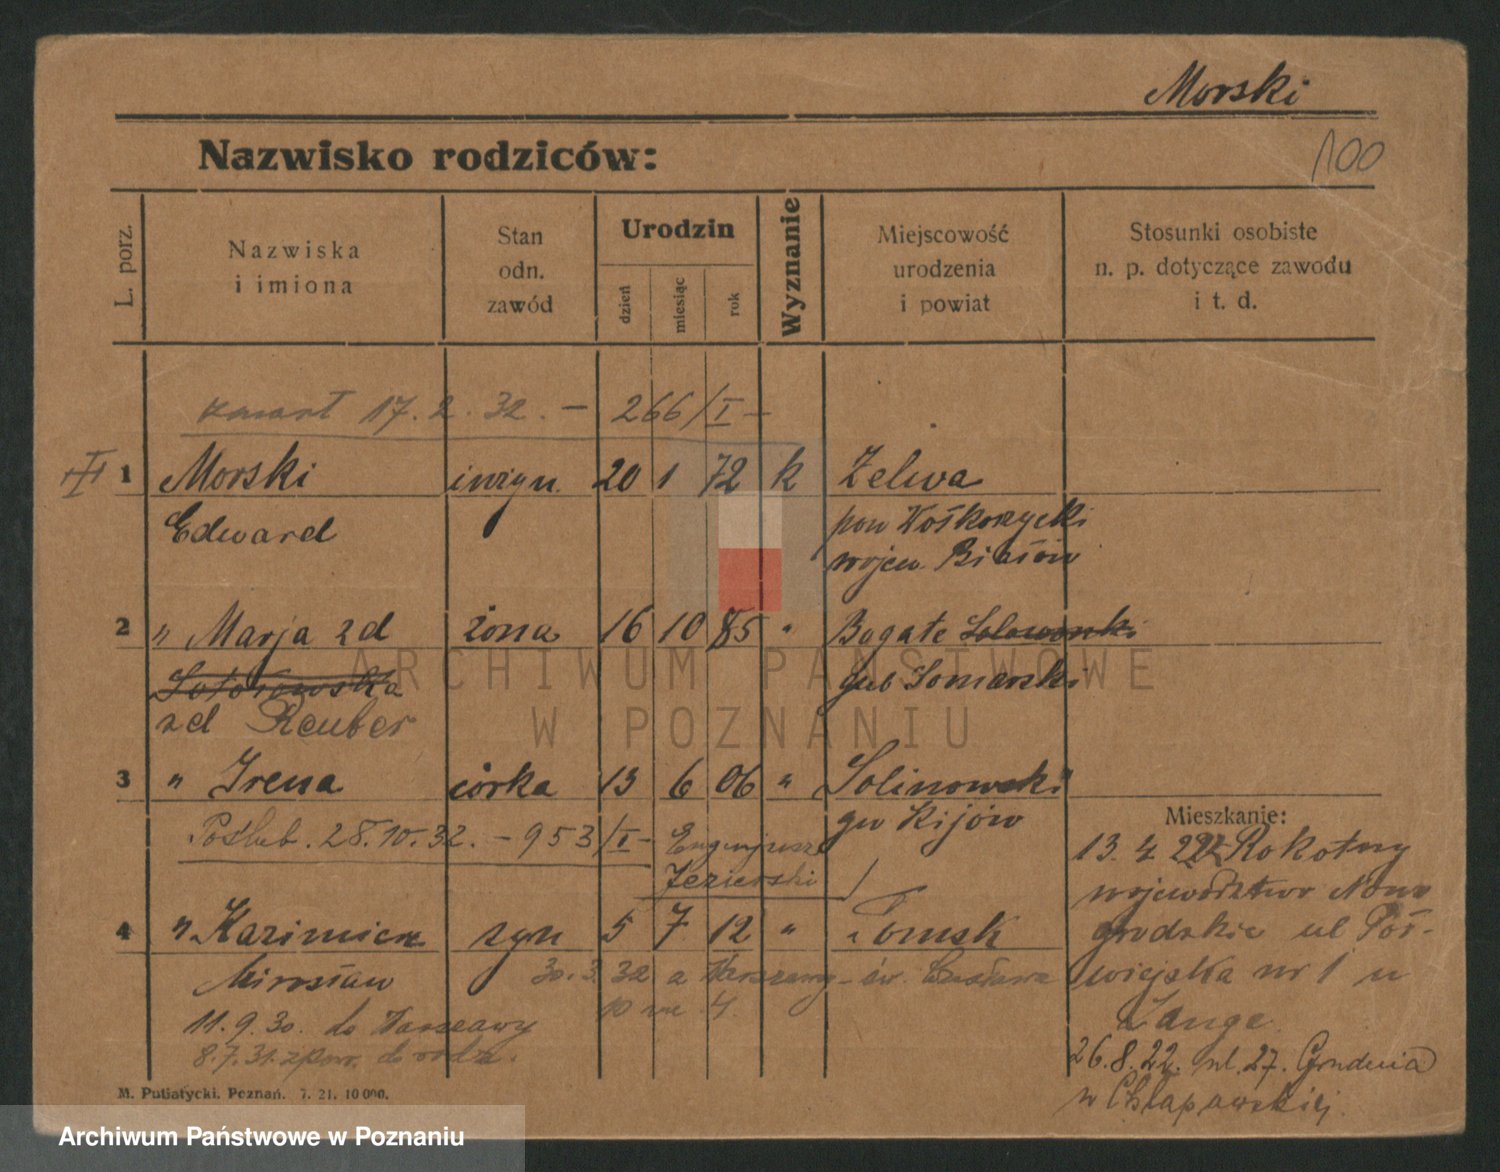 Morski
Nazwisko rodziców:
100
L. porz.
Nazwiska
i imiona
Stan
odn.
zawód
Urodzin
dzień
miesiąc
rok
Wyznanie
Miejscowość
urodzenia
i powiat
Stosunki osobiste
n. p. dotyczące zawodu
i t. d.
17. 2. 32. — 266/I —
1 Morski inżyn. 20 1 72 k Zelwa
Edward pow
wojew.
2 " Marja zd żona 16 10 85 " Bogate
gub Łomarski
zd Reuber
3 " Irena córka 13 6 06 " Solinowski
gu Kijów
Poślub. 28.10.32. — 953/I — Eugenjusz
Jezierski
4 " Kazimierz syn 5 7 12 " Tomsk
Mirosław
30.3.32 z Warszawy - św.
11.9.30. do Warszawy
8.7.31. z pow. do rodz.
Mieszkanie:
13. 4. 22 z Rokotny
województwo Nowo
grodzkie ul Pół-
wiejska nr 1 u
Lange
26.8.22. ul. 27. Grudnia
u Chłapowskiej
M. Putiatycki. Poznań. 7. 21. 10 000.
ARCHIWUM PAŃSTWOWE
W POZNANIU
Archiwum Państwowe w Poznaniu